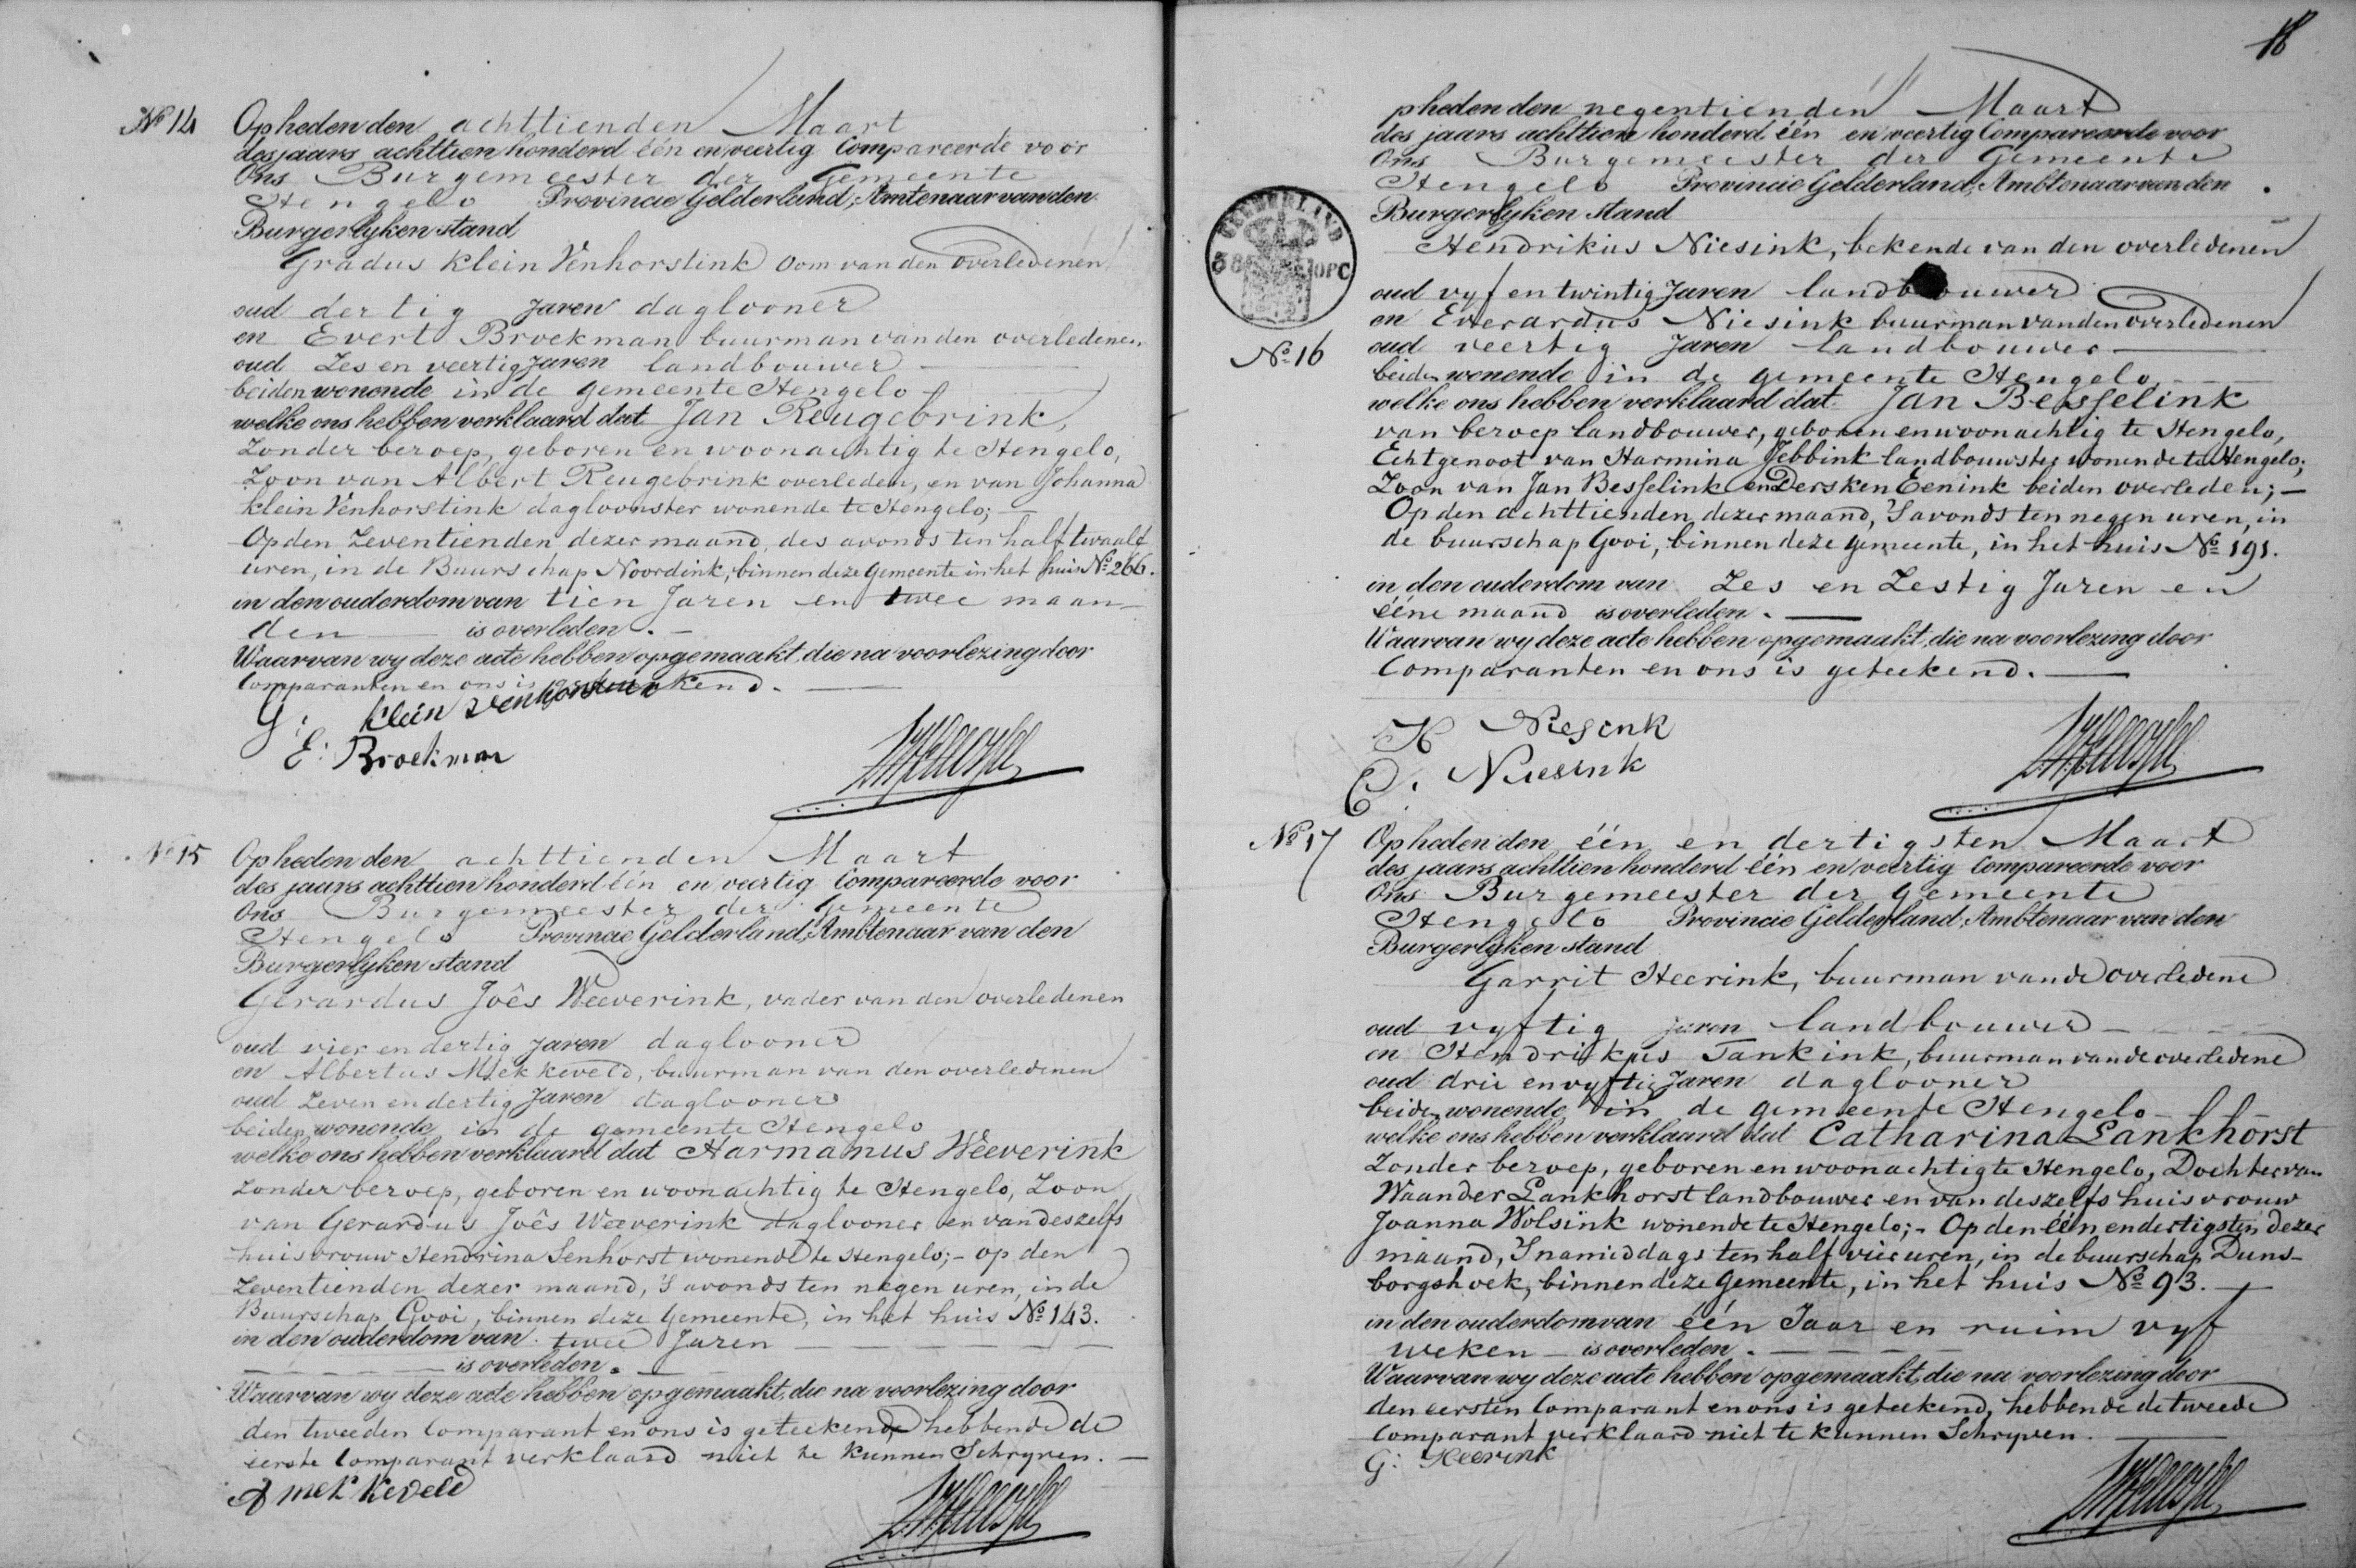 No 14
Op heden den achttienden Maart
des jaars achttien honderd één en veertig Compareerde voor
Ons Burgemeester der Gemeente
Hengelo Provincie Gelderland, Amtenaar van den
Burgerlyken stand
Gradus Klein Venhorstink Oom van den overledenen
oud dertig Jaren daglooner
en Evert Broekman buurman van den overledenen
oud Zes en veertig Jaren landbouwer
beiden wonende in de gemeente Hengelo
welke ons hebben verklaard dat Jan Reugebrink,
Zonder beroep, geboren en woonachtig te Hengelo,
Zoon van Albert Reugebrink overleden, en van Johanna
Klein Venhorstink dagloonster wonende te Hengelo; —
Op den Zeventienden dezer maand, des avonds ten half twaalf
uren, in de Buurschap Noordink, binnen deze Gemeente in het huis No 266.
in den ouderdom van tien Jaren en twee maan-
den is overleden. —
Waarvan wy deze acte hebben opgemaakt, die na voorlezing door
Comparanten en ons is geteekend. —
G: Klein Venhorstink
E: Broekman
No 15
Op heden den achttienden Maart
des jaars achttien honderd één en veertig Compareerde voor
Ons Burgemeester der Gemeente
Hengelo Provincie Gelderland, Ambtenaar van den
Burgerlyken stand
Gerardus Joês Weeverink, vader van den overledenen
oud vier en dertig Jaren daglooner
en Albertus Mekkeveld, buurman van den overledenen
oud Zeven en dertig Jaren daglooner
beiden wonende in de gemeente Hengelo
welke ons hebben verklaard dat Harmanus Weeverink
Zonder beroep, geboren en woonachtig te Hengelo, Zoon
van Gerardus Joês Weeverink daglooner en van deszelfs
huisvrouw Hendrina Senhorst wonende te Hengelo; - op den
Zeventienden dezer maand, 's avonds ten negen uren, in de
Buurschap Gooi, binnen deze Gemeente, in het huis No 143.
in den ouderdom van twee Jaren
is overleden.
Waarvan wy deze acte hebben opgemaakt, die na voorlezing door
den tweeden Comparant en ons is geteekend, hebbende de
eerste Comparant verklaard niet te kunnen Schryven. —
A mekkeveld
18
pheden den negentienden Maart
des jaars achttien honderd één en veertig Compareerde voor
Ons Burgemeester der Gemeente
Hengelo Provincie Gelderland, Ambtenaar van den
Burgerlyken stand
Hendrikus Niesink, bekende van den overledenen
oud vyf en twintig Jaren landbouwer
en Everardus Niesink buurman van den overledenen
No 16
oud veertig Jaren landbouwer
beiden wonende in de gemeente Hengelo
welke ons hebben verklaard dat Jan Besselink
van beroep landbouwer, geboren en woonachtig te Hengelo,
Echtgenoot van Harmina Jebbink landbouwster wonende te Hengelo;
Zoon van Jan Besselink en Dersken Eenink beiden overleden; —
Op den achttienden dezer maand, 's avonds ten negen uren, in
de buurschap Gooi, binnen deze gemeente, in het huis No 191.
in den ouderdom van Zes en Zestig Jaren en
ééne maand is overleden. —
Waarvan wy deze acte hebben opgemaakt, die na voorlezing door
Comparanten en ons is geteekend. —
H Niesink
E. Niesink
No 17
Op heden den één en dertigsten Maart
des jaars achttien honderd één en veertig Compareerde voor
Ons Burgemeester der Gemeente
Hengelo Provincie Gelderland, Ambtenaar van den
Burgerlyken stand
Garrit Heerink, buurman van de overledene
oud vyftig jaren landbouwer
en Hendrikus Tankink, buurman van de overledene
oud drie en vyftig Jaren daglooner
beiden wonende in de gemeente Hengelo
welke ons hebben verklaard dat Catharina Lankhorst
Zonder beroep, geboren en woonachtig te Hengelo, Dochter van
Waander Lankhorst landbouwer en van deszelfs huisvrouw
Joanna Wolsink wonende te Hengelo; - Op den één en dertigsten dezer
maand, 's namiddags ten half vier uren, in de buurschap Duns-
borgshoek, binnen deze gemeente, in het huis No 93. —
in den ouderdom van één Jaar en ruim vyf
weken is overleden.
Waarvan wy deze acte hebben opgemaakt, die na voorlezing door
den eersten Comparant en ons is geteekend, hebbende de tweede
Comparant verklaard niet te kunnen Schryven.
G: Heerink